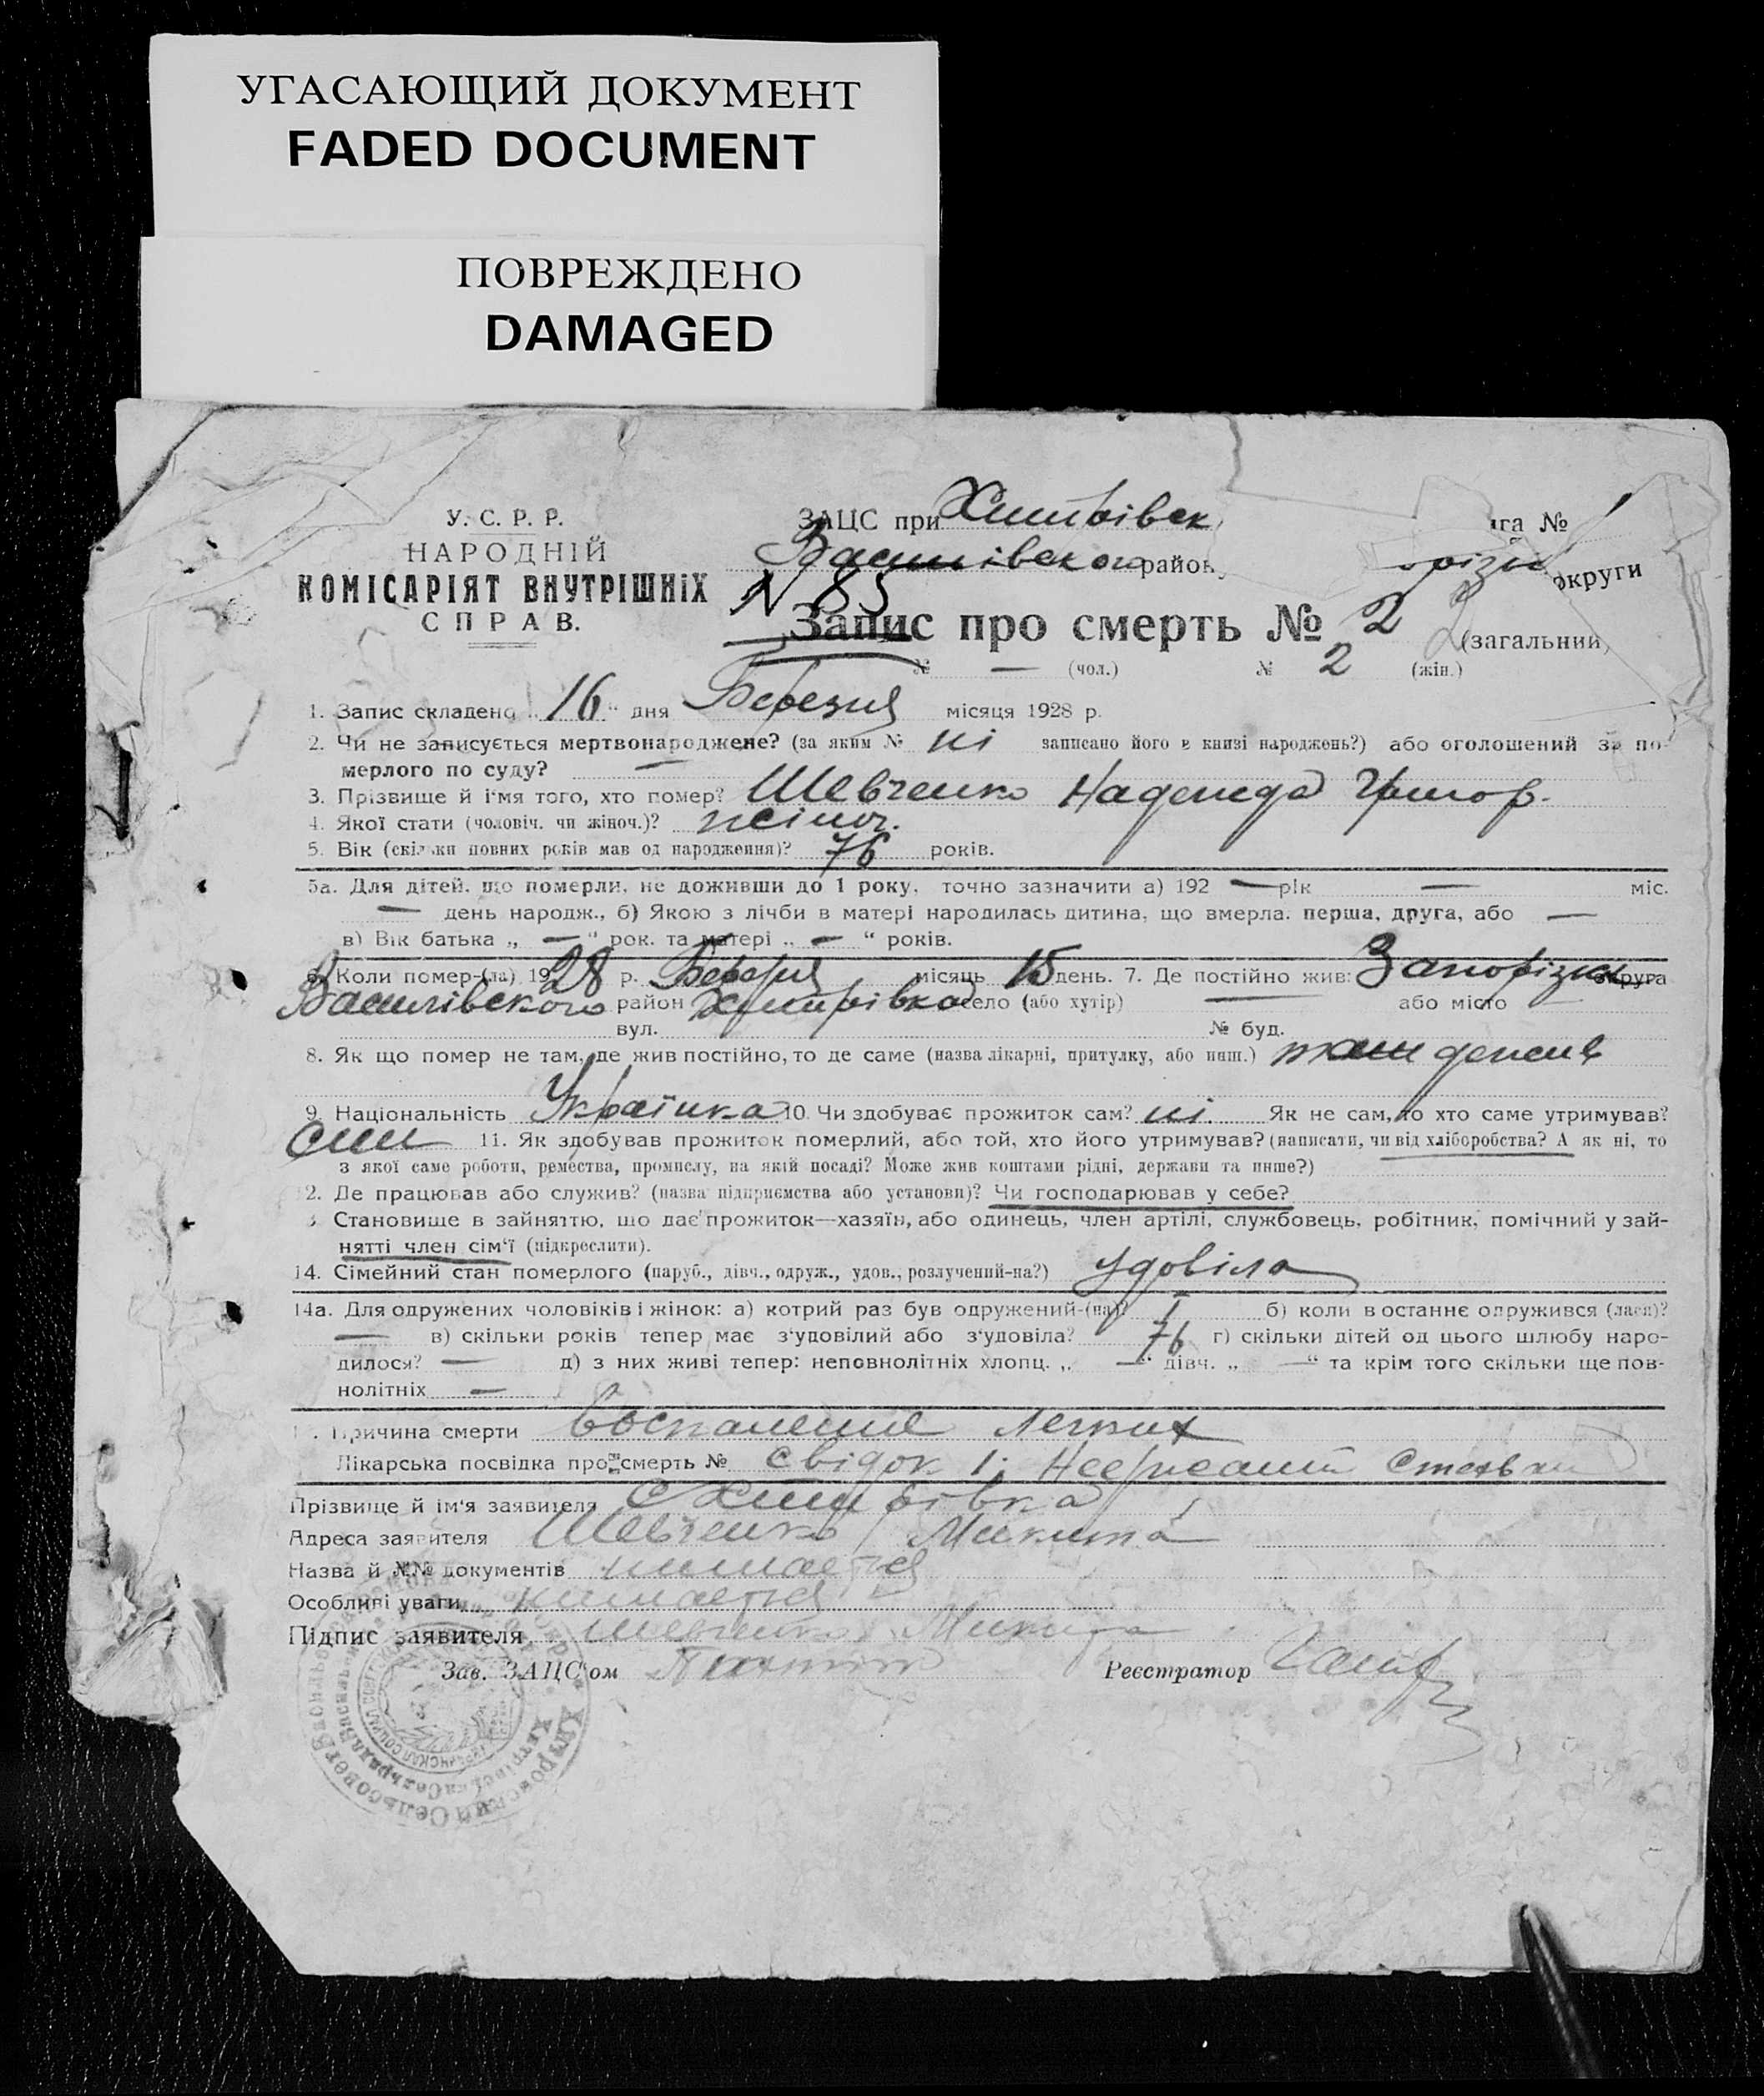 УГАСАЮЩИЙ ДОКУМЕНТ
FADED DOCUMENT
ПОВРЕЖДЕНО
DAMAGED
У. С. Р. Р.
НАРОДНІЙ
КОМІСАРІЯТ ВНУТРІШНІХ
СПРАВ.
ЗАЦС при Хитрівск
Василівського район
округи
№
N 85
Запис про смерть № 2 2 (загальний)
№ — (чол.) № 2 (жін.)
1. Запис складено „16“ дня Березня місяця 1928 р.
2. Чи не записується мертвонароджене? (за яким № ні записано його в книзі народжень?) або оголошений за по-
мерлого по суду? —
3. Прізвище й і'мя того, хто помер? Шевченко Надежда Григор.
4. Якої стати (чоловіч. чи жіноч.)? жіноч.
5. Вік (скільки повних років мав од народження)? 76 років.
5а. Для дітей, що померли, не доживши до 1 року, точно зазначити а) 192 — рік — міс.
— день народж., б) Якою з лічби в матері народилась дитина, що вмерла: перша, друга, або —
в) Вік батька „ — “ рок. та матері „ — “ років.
6. Коли помер-(ла) 1928 р. Березня місяць 15 день. 7. Де постійно жив: Запорізька округа
Василівского район Хитрівка село (або хутір) — або місто —
вул. № буд.
8. Як що помер не там, де жив постійно, то де саме (назва лікарні, притулку, або инш.)
9. Національність Українка 10. Чи здобуває прожиток сам? ні. Як не сам, то хто саме утримував?
син 11. Як здобував прожиток померлий, або той, хто його утримував? (написати, чи від хліборобства? А як ні, то
з якої саме роботи, ремества, промислу, на якій посаді? Може жив коштами рідні, держави та инше?)
12. Де працював або служив? (назва підприємства або установи)? Чи господарював у себе?
Становище в зайняттю, що дає прожиток—хазяїн, або одинець, член артілі, службовець, робітник, помічний у зай-
нятті член сім'ї (підкреслити).
14. Сімейний стан померлого (паруб., дівч., одруж., удов., розлучений-на?) удовіла
14а. Для одружених чоловіків і жінок: а) котрий раз був одружений-(на)? 1 б) коли в останнє одружився (лася)?
— в) скільки років тепер має з'удовілий або з'удовіла? 76 г) скільки дітей од цього шлюбу наро-
дилося? — д) з них живі тепер: неповнолітніх хлопц. „ — “ дівч. „ — “ та крім того скільки ще пов-
нолітніх —
Причина смерти воспаление легких
Лікарська посвідка про смерть № свідок 1;
Прізвище й ім'я заявителя С Хитрівка
Адреса заявителя Шевченко Микита
Назва й №№ документів
Особливі уваги
Підпис заявителя Шевченко Микита
Зав. ЗАЦС'ом
Реєстратор